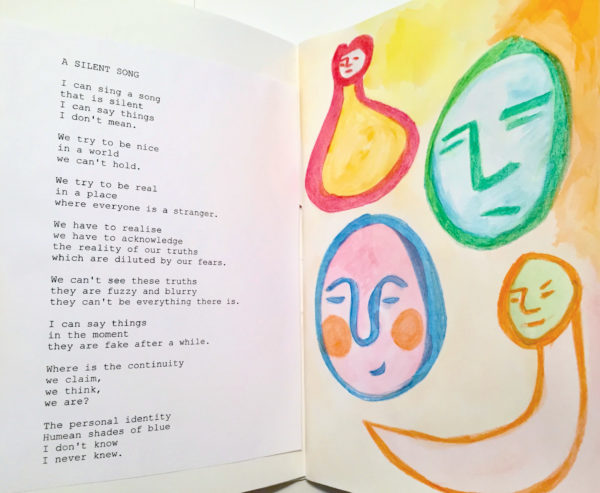 A SILENT SONG
I can sing a song
that is silent
I can say things
I don't mean.
We try to be nice
in a world
we can't hold.
We try to be real
in a place
where everyone is a stranger.
We have to realise
we have to acknowledge
the reality of our truths
which are diluted by our fears.
We can't see these truths
they are fuzzy and blurry
they can't be everything there is.
I can say things
in the moment
they are fake after a while.
Where is the continuity
we claim,
we think,
we are?
The personal identity
Humean shades of blue
I don't know
I never knew.